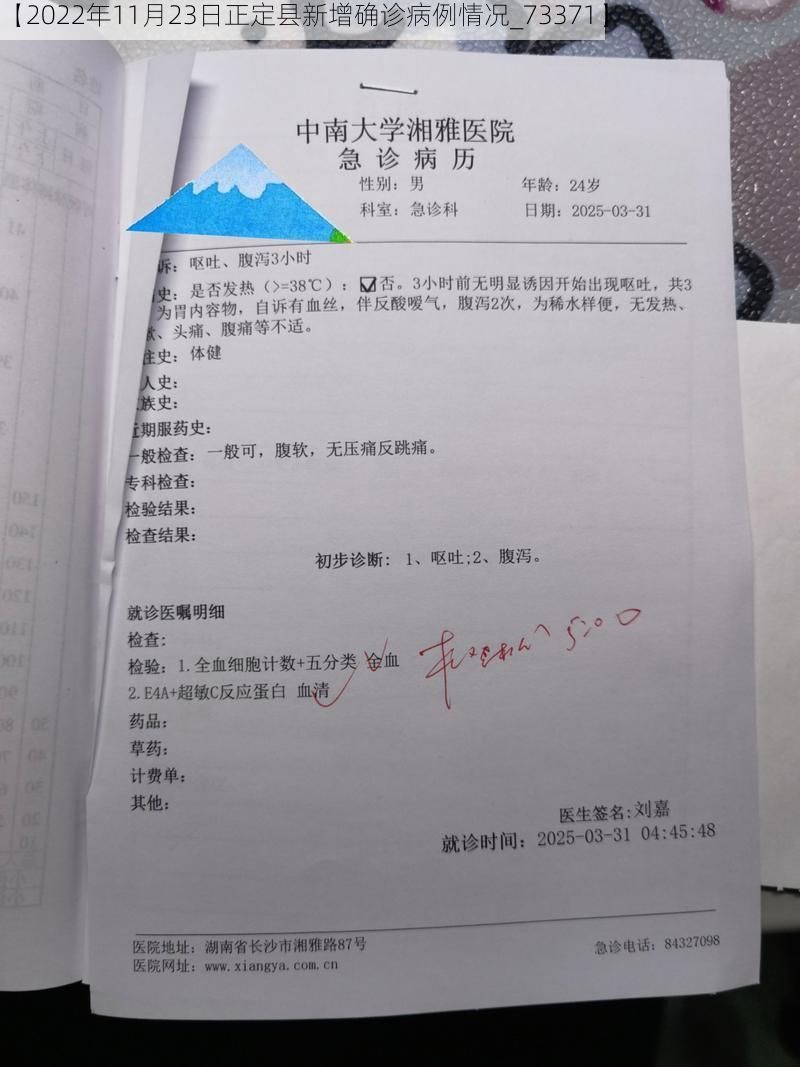 【2022年11月23日正定县新增确诊病例情况_73371】
中南大学湘雅医院
急诊病历
性别：男 年龄：24岁
科室：急诊科 日期：2025-03-31
诉：呕吐、腹泻3小时
史：是否发热（>=38℃）：☑否。3小时前无明显诱因开始出现呕吐，共3
为胃内容物，自诉有血丝，伴反酸嗳气，腹泻2次，为稀水样便，无发热、
、头痛、腹痛等不适。
往史：体健
人史：
族史：
近期服药史：
一般检查：一般可，腹软，无压痛反跳痛。
专科检查：
检验结果：
检查结果：
初步诊断：1、呕吐;2、腹泻。
就诊医嘱明细
检查：
检验：1.全血细胞计数+五分类 全血
2.E4A+超敏C反应蛋白 血清
5:00
药品：
草药：
计费单：
其他：
医生签名:刘嘉
就诊时间：2025-03-31 04:45:48
医院地址：湖南省长沙市湘雅路87号 急诊电话：84327098
医院网址：www.xiangya.com.cn